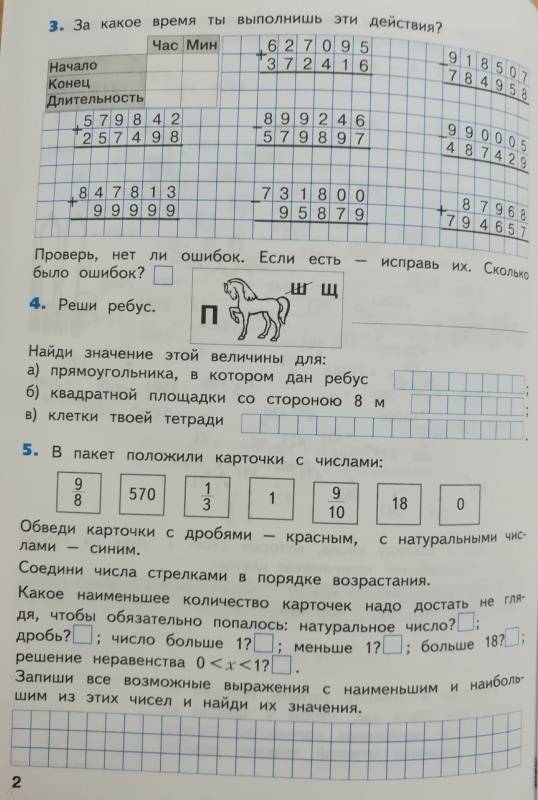 3. За какое время ты выполнишь эти действия?
Час Мин
Начало
Конец
Длительность
+ 627095
372416
- 918507
784958
+ 579842
257498
- 899246
579897
- 990005
487429
+ 847813
99999
- 731800
95879
+ 87968
794657
Проверь, нет ли ошибок. Если есть — исправь их. Сколько
было ошибок?
4. Реши ребус.
П Ш Щ
Найди значение этой величины для:
а) прямоугольника, в котором дан ребус ;
б) квадратной площадки со стороною 8 м ;
в) клетки твоей тетради .
5. В пакет положили карточки с числами:
9/8 570 1/3 1 9/10 18 0
Обведи карточки с дробями — красным, с натуральными чис-
лами — синим.
Соедини числа стрелками в порядке возрастания.
Какое наименьшее количество карточек надо достать не гля-
дя, чтобы обязательно попалось: натуральное число? ;
дробь? ; число больше 1? ; меньше 1? ; больше 18? ;
решение неравенства 0 < x < 1? .
Запиши все возможные выражения с наименьшим и наиболь-
шим из этих чисел и найди их значения.
2